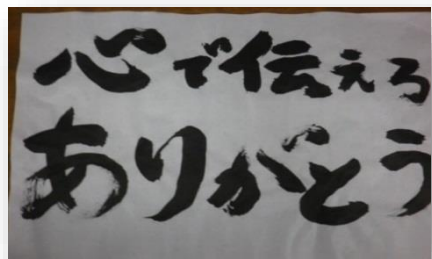 心で伝えろ
ありがとう